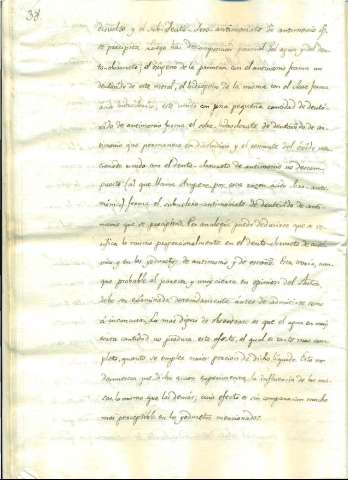 38
disuelto y el sub-deuto-cloro-antimoniato de antimonio q.e
se precipita. Luego hai descomposicion parcial del agua y del deu-
to-cloruro; el oxigeno de la primera con el antimonio forma un
deutóxido de este metal, el hidrogeno de la misma con el cloro forma
ácido hidroclorico; este unido con una pequeña cantidad de deutó-
xido de antimonio forma el sobre-hidroclorate de deutóxido de an-
timonio que permanece en disolucion y el restante del óxido men-
cionado unido con el deuto-cloruro de antimonio no descom-
puesto (al que llama Ampere por esta razon ácido cloro-anti-
mónico) forma el sub-cloro-antimoniato de deutóxido de anti-
monio que se precipita. Por analogia puede deducirse que se ve-
rifica lo mismo proporcionalmente en el deuto-cloruro de
y en los yoduretos de antimonio y de estaño. Esta teoria, aun-
que probable al parecer, y muy cierta en opinion del
debe ser examinada detenidamente antes de admitirse como
Lo mas digno de observarse es que el agua en muy
corta cantidad no produce este efecto, el qual es tanto mas com-
pleto, quanto se emplee maior porcion de dicho liquido. Esto
demuestra que dicho quimico la influencia de las ma-
sas, lo mismo que los demás; cuio efecto es sin comparacion mucho
mas perceptible en los yoduretos mencionados.